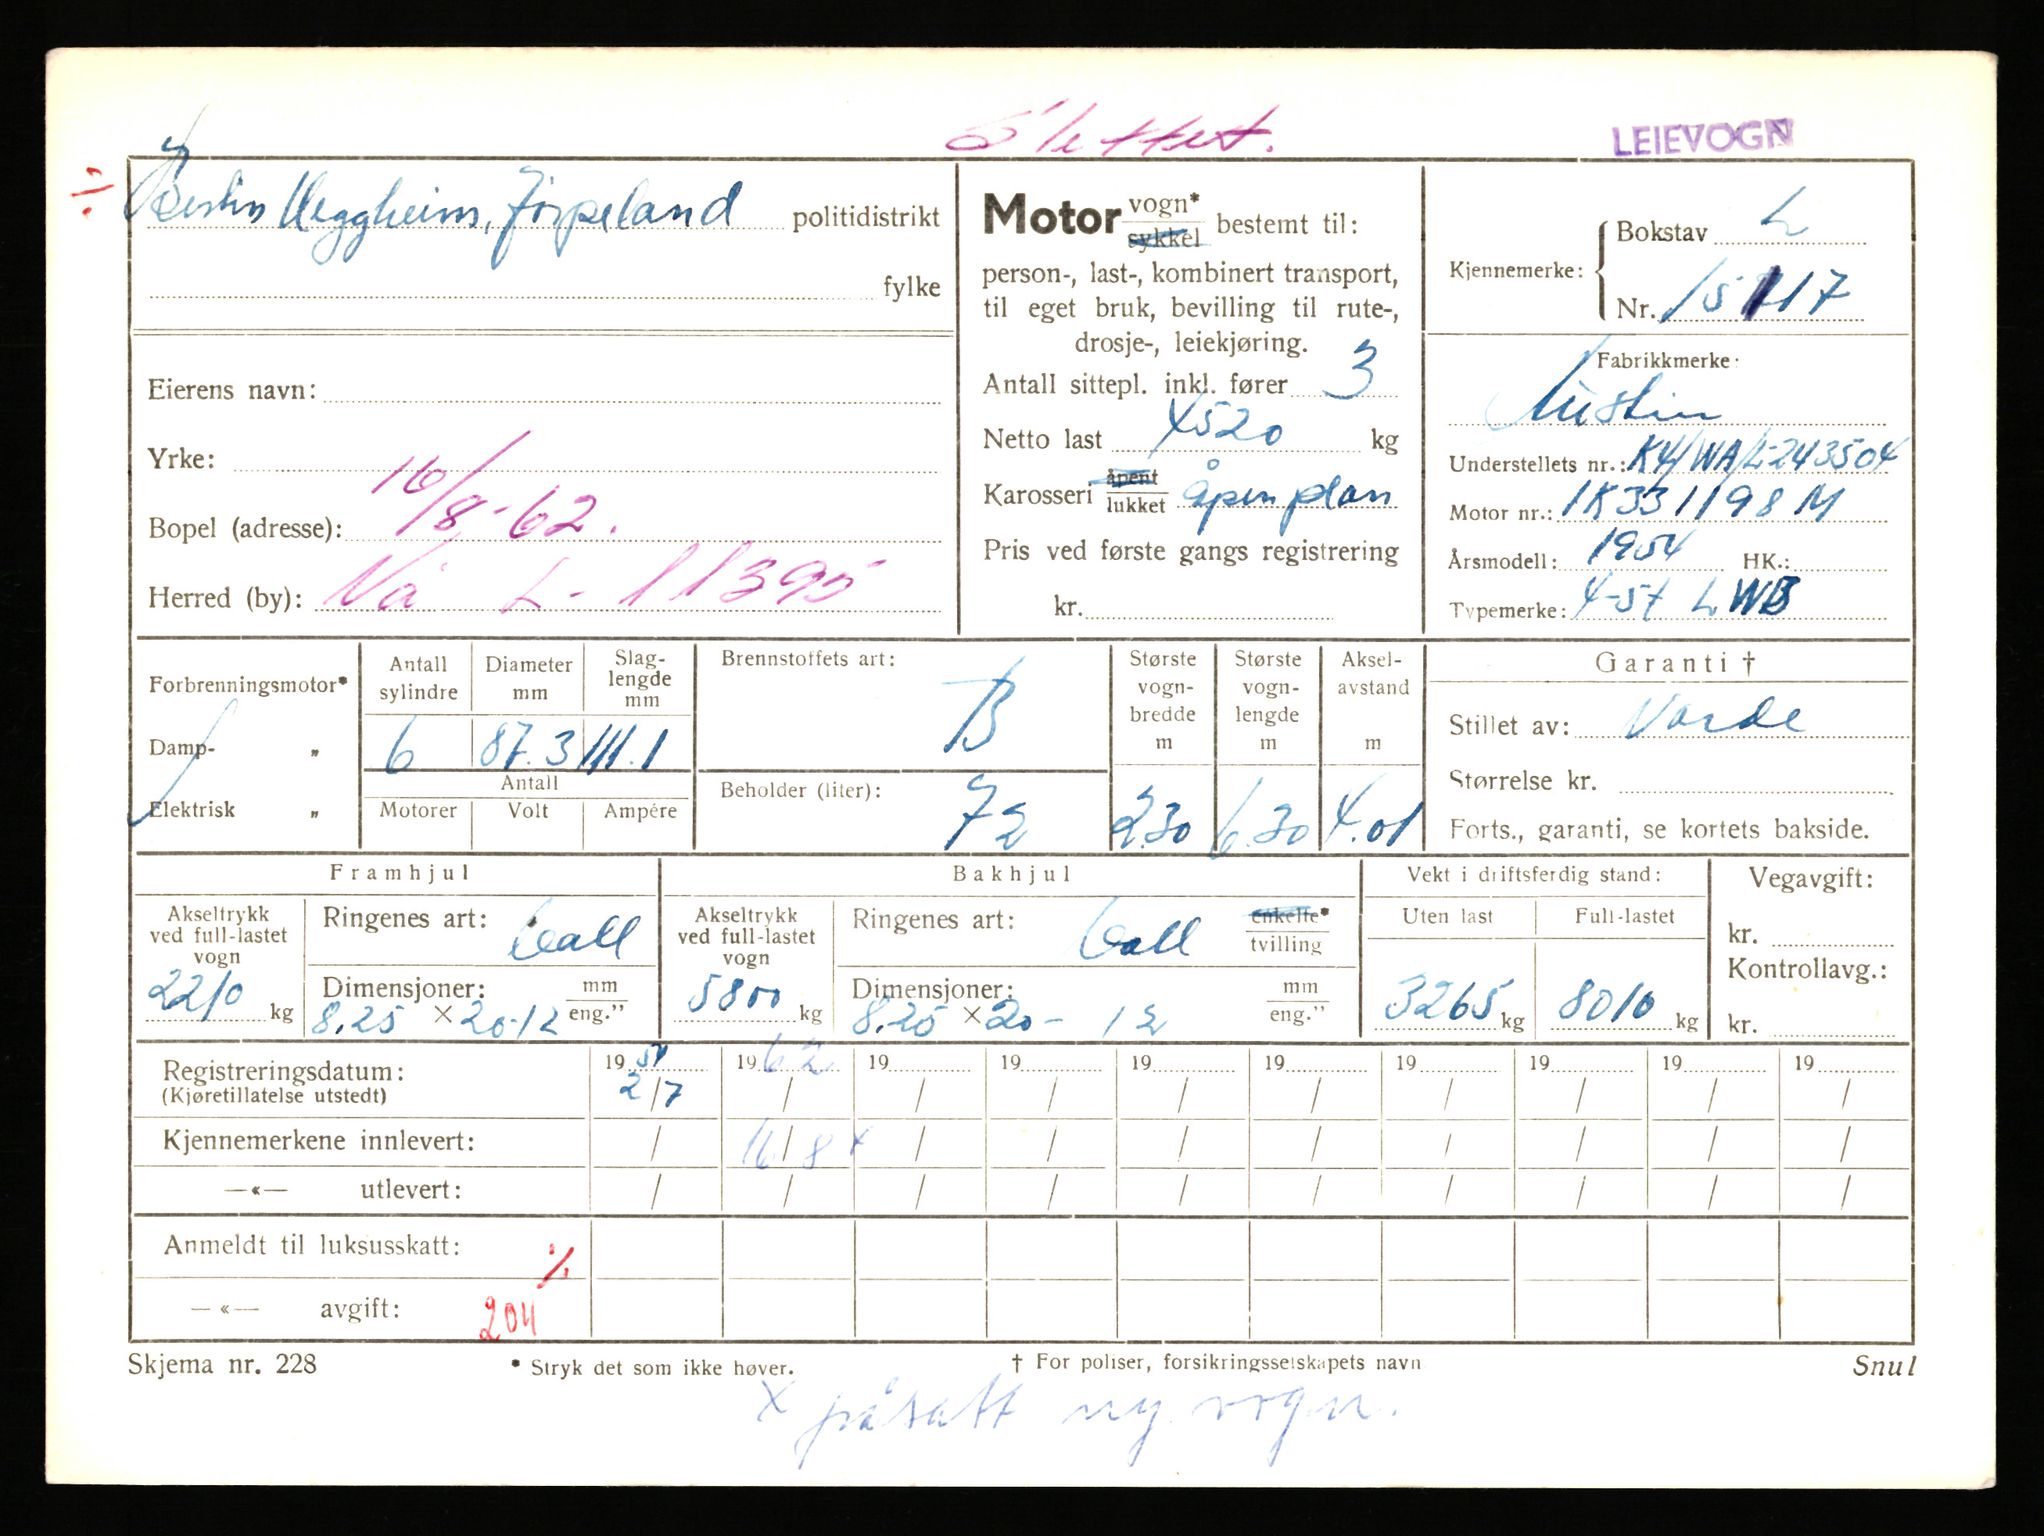 Slettet.
LEIEVOGN
÷
Heggheim, Jørpeland politidistrikt
fylke
Eierens navn:
Yrke:
16/8-62.
Bopel (adresse):
Herred (by): Nå L-11395
Motor vogn* sykkel bestemt til:
person-, last-, kombinert transport,
til eget bruk, bevilling til rute-,
drosje-, leiekjøring.
Antall sittepl. inkl. fører 3
Netto last 4520 kg
Karosseri åpent lukket åpen plan
Pris ved første gangs registrering
kr.
Kjennemerke:
Bokstav L
Nr. 15117
Fabrikkmerke:
Austin
Understellets nr.: K4/WA/L-243504
Motor nr.: 1K331198M
Årsmodell: 1954 HK.:
Typemerke: 4-5t LWB
Forbrenningsmotor*
Damp- „
Elektrisk „
Antall sylindre
Diameter mm
Slag-lengde mm
6 87.3 111.1
Antall
Motorer Volt Ampére
Brennstoffets art: B
Beholder (liter): 72
Største vogn-bredde m 2.30
Største vogn-lengde m 6.30
Aksel-avstand m 4.01
Garanti †
Stillet av: Varde
Størrelse kr.
Forts., garanti, se kortets bakside.
Framhjul
Akseltrykk ved full-lastet vogn 2210 kg
Ringenes art:
Dimensjoner: mm eng."
8.25 × 20-12
Bakhjul
Akseltrykk ved full-lastet vogn 5800 kg
Ringenes art: enkelte* tvilling
Dimensjoner: mm eng."
8.25 × 20-12
Vekt i driftsferdig stand:
Uten last 3265 kg
Full-lastet 8010 kg
Vegavgift:
kr.
Kontrollavg.:
kr.
Registreringsdatum: 19 54 19 62 19 19 19 19 19 19 19 19
(Kjøretillatelse utstedt) 2/7 / / / / / / / / /
Kjennemerkene innlevert: / 16/8 x / / / / / / / /
—«— utlevert: / / / / / / / / / /
Anmeldt til luksusskatt: ./.
—«— avgift: 204
Skjema nr. 228 * Stryk det som ikke høver. † For poliser, forsikringsselskapets navn Snul
x påsatt ny vogn.